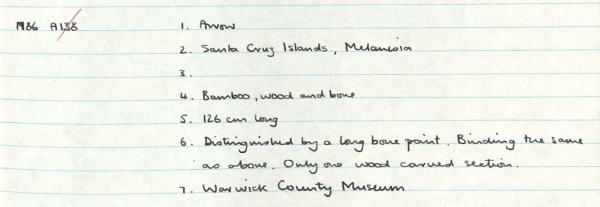 1986 A138 1. Arrow
2. Santa Cruz Islands, Melanesia
3.
4. Bamboo, wood and bone
5. 126 cm long
6. Distinguished by a long bone point. Binding the same
as above. Only one wood carved section.
7. Warwick County Museum